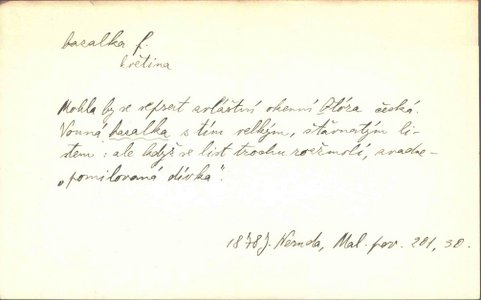 bazalka f.
květina
Mohla by se sepsat zvláštní okenní flóra česká.
Vonná bazalka s tím velkým, šťavnatým li-
stem: ale když se list trochu rozemolí, svadne –
„pomilovaná dívka“.
1878 J. Neruda, Mal. pov. 201, 30.